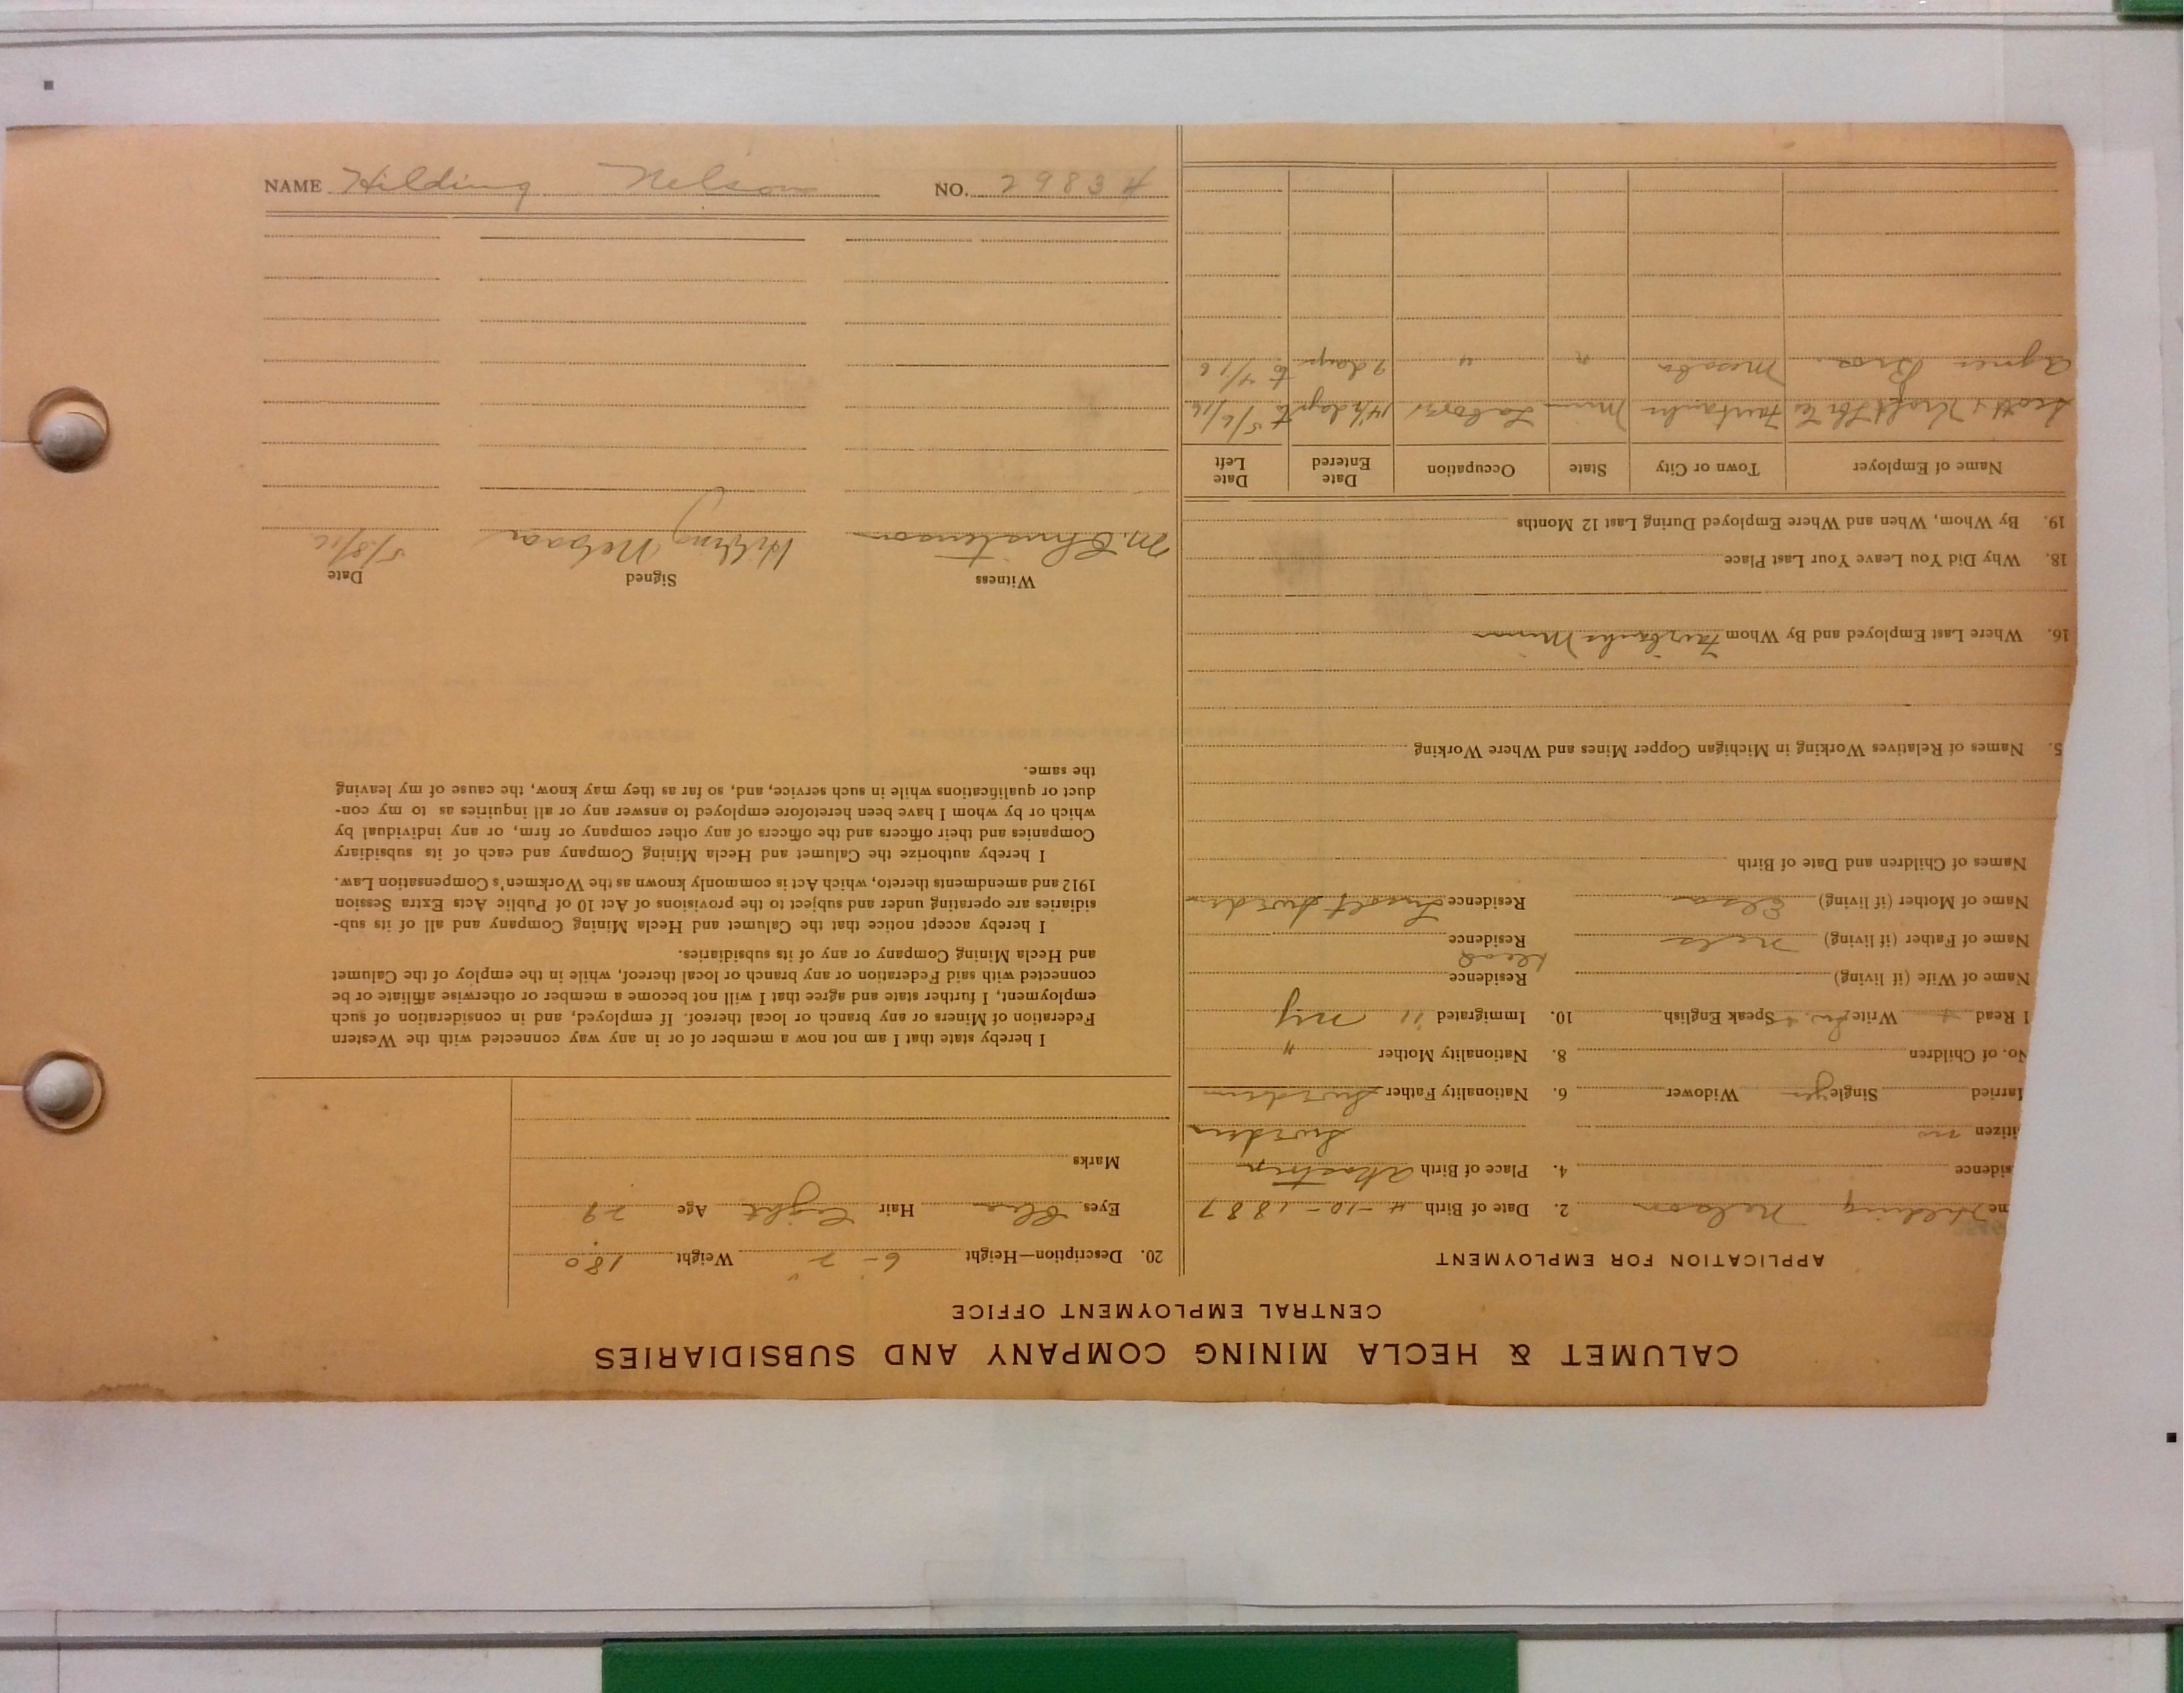 CALUMET & HECLA MINING COMPANY AND SUBSIDIARIES
CENTRAL EMPLOYMENT OFFICE
APPLICATION FOR EMPLOYMENT
me Hilding Nelson 2. Date of Birth 4-10-1887
sidence 4. Place of Birth
itizen no Sweden
arried Single yes Widower 6. Nationality Father Sweden
No. of Children 8. Nationality Mother "
I Read Write Speak English 10. Immigrated 11 NY
Name of Wife (if living) Residence
Name of Father (if living) Nels Residence dead
Name of Mother (if living) Elsa Residence Sweden
Names of Children and Date of Birth
5. Names of Relatives Working in Michigan Copper Mines and Where Working
16. Where Last Employed and By Whom Fairbanks Minn
18. Why Did You Leave Your Last Place
19. By Whom, When and Where Employed During Last 12 Months
Name of Employer Town or City State Occupation Date Entered Date Left
Scott & Fairbanks Minn Labor 14½ days to 5/6/16
Bros. Mesaba " " 9 days to 4/16
20. Description—Height 6-2" Weight 180
Eyes Blue Hair Light Age 29
Marks
I hereby state that I am not now a member of or in any way connected with the Western
Federation of Miners or any branch or local thereof. If employed, and in consideration of such
employment, I further state and agree that I will not become a member or otherwise affiliate or be
connected with said Federation or any branch or local thereof, while in the employ of the Calumet
and Hecla Mining Company or any of its subsidiaries.
I hereby accept notice that the Calumet and Hecla Mining Company and all of its sub-
sidiaries are operating under and subject to the provisions of Act 10 of Public Acts Extra Session
1912 and amendments thereto, which Act is commonly known as the Workmen's Compensation Law.
I hereby authorize the Calumet and Hecla Mining Company and each of its subsidiary
Companies and their officers and the officers of any other company or firm, or any individual by
which or by whom I have been heretofore employed to answer any or all inquiries as to my con-
duct or qualifications while in such service, and, so far as they may know, the cause of my leaving
the same.
Witness Signed Date
M. Christenson Hilding Nelson 5/8/16
NAME Hilding Nelson NO. 29834